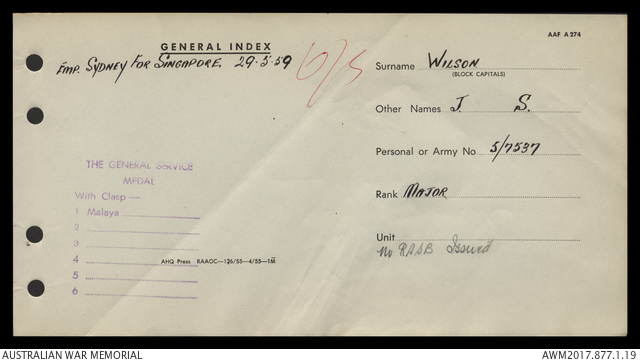 AAF A274
GENERAL INDEX
EMP. SYDNEY FOR SINGAPORE. 29.5.59
Surname WILSON
(BLOCK CAPITALS)
Other Names J. S.
Personal or Army No 5/7537
Rank MAJOR
Unit
No RASB Issued
THE GENERAL SERVICE
MEDAL
With Clasp —
1 Malaya
2
3
4
5
6
AHQ Press RAAOC—126/55—4/55—1M
AUSTRALIAN WAR MEMORIAL
AWM2017.877.1.19